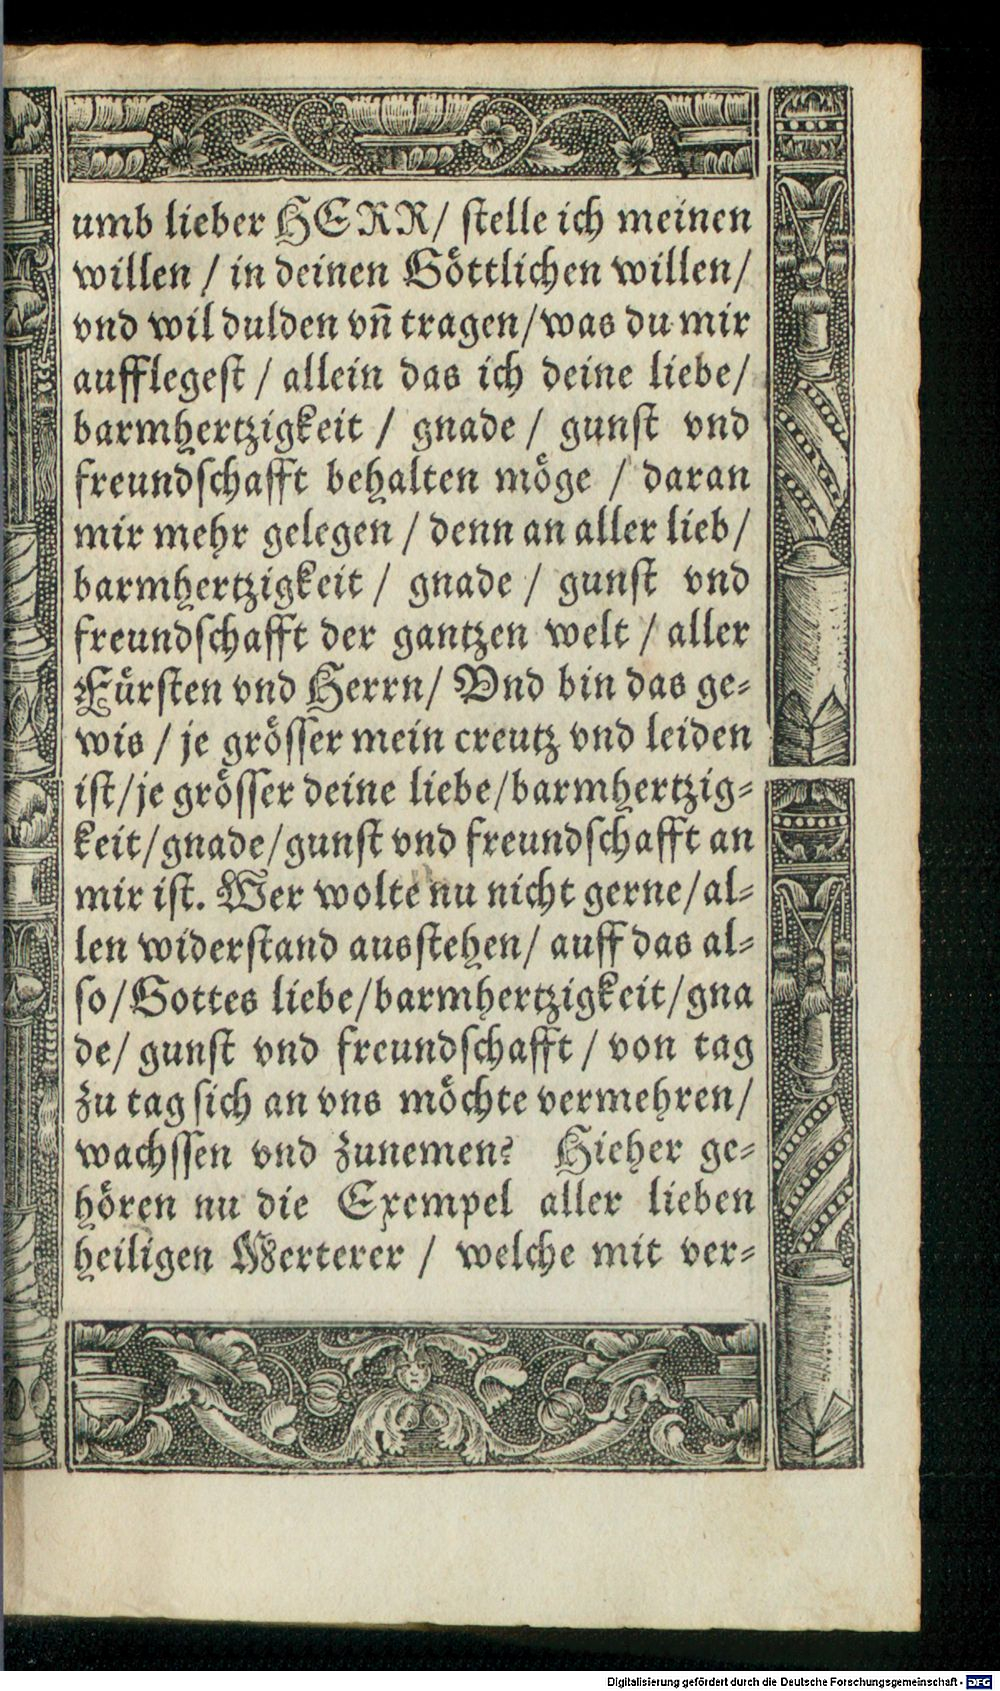 umb lieber HERR/ stelle ich meinen
willen / in deinen Göttlichen willen/
vnd wil dulden vn̄ tragen/was du mir
aufflegest / allein das ich deine liebe/
barmhertzigkeit / gnade / gunst vnd
freundschafft behalten möge / daran
mir mehr gelegen / denn an aller lieb/
barmhertzigkeit / gnade / gunst vnd
freundschafft der gantzen welt / aller
Fürsten vnd Herrn/ Vnd bin das ge⸗
wis / je grösser mein creutz vnd leiden
ist/je grösser deine liebe/barmhertzig⸗
keit/gnade/gunst vnd freundschafft an
mir ist. Wer wolte nu nicht gerne/al⸗
len widerstand ausstehen/ auff das al⸗
so/Gottes liebe/barmhertzigkeit/gna
de/ gunst vnd freundschafft / von tag
zu tag sich an vns möchte vermehren/
wachssen vnd zunemen? Hieher ge⸗
hören nu die Exempel aller lieben
heiligen Merterer / welche mit ver⸗
Digitalisierung gefördert durch die Deutsche Forschungsgemeinschaft - DFG